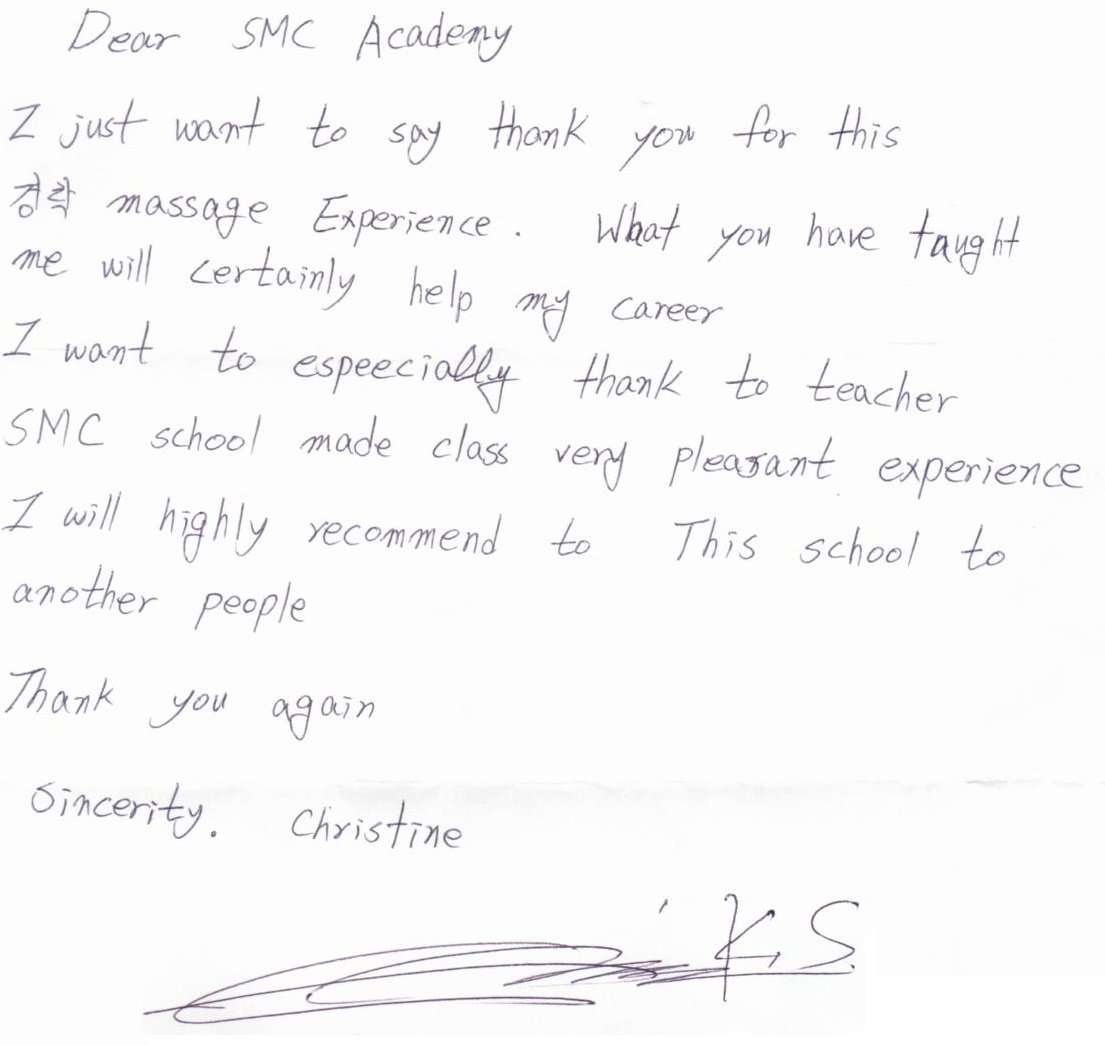 Dear SMC Academy
I just want to say thank you for this
경락 massage Experience. What you have taught
me will certainly help my career
I want to espeecially thank to teacher
SMC school made class very pleasant experience
I will highly recommend to This school to
another people
Thank you again
Sincerity. Christine
K.S.